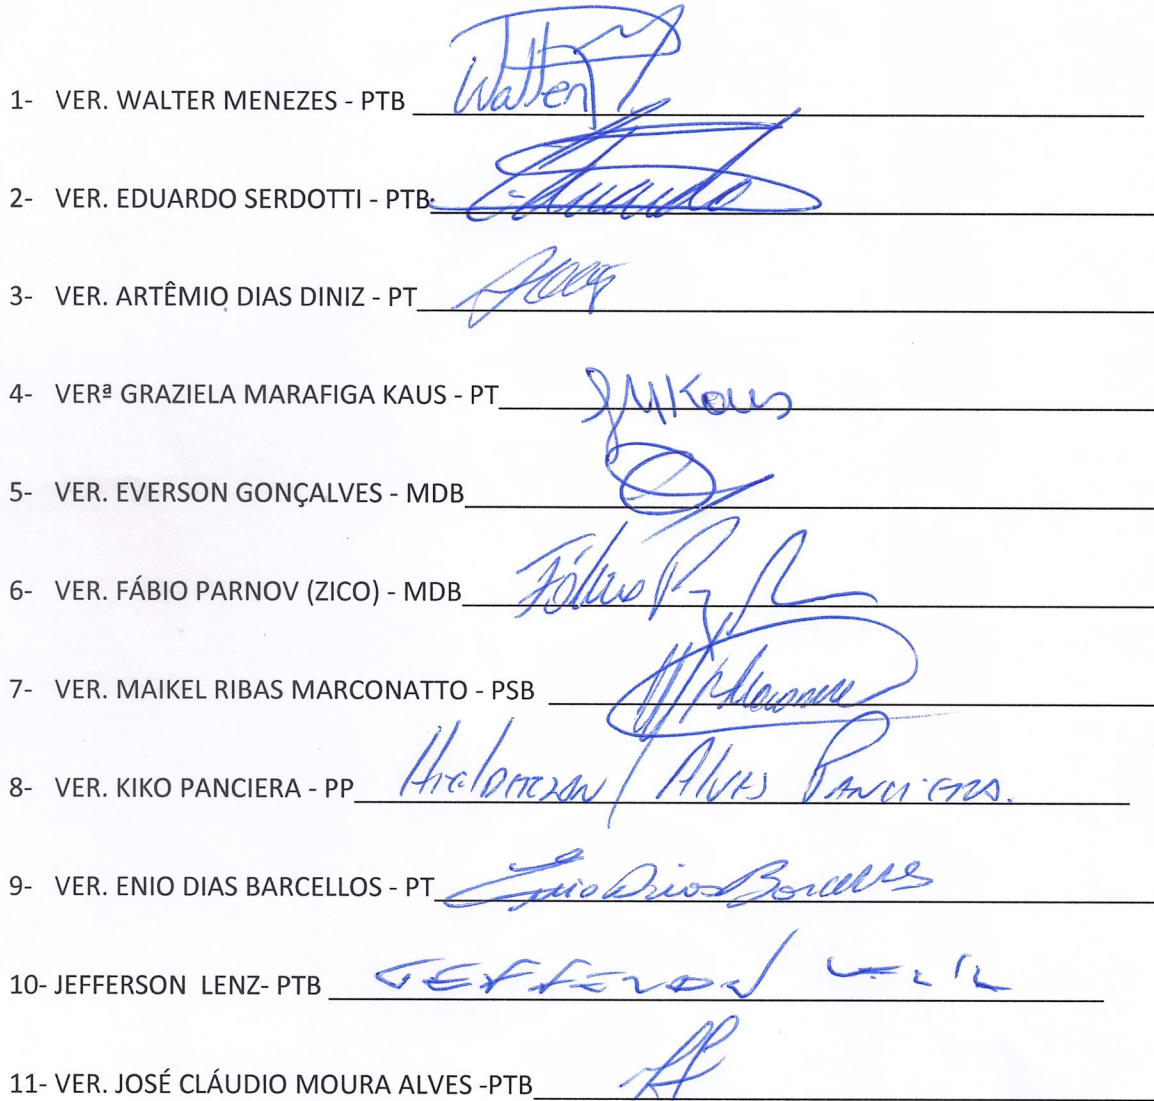 1- VER. WALTER MENEZES - PTB Walter
2- VER. EDUARDO SERDOTTI - PTB Eduardo
3- VER. ARTÊMIO DIAS DINIZ - PT
4- VERª GRAZIELA MARAFIGA KAUS - PT GMKaus
5- VER. EVERSON GONÇALVES - MDB
6- VER. FÁBIO PARNOV (ZICO) - MDB Fábio
7- VER. MAIKEL RIBAS MARCONATTO - PSB
8- VER. KIKO PANCIERA - PP Alves Panciera.
9- VER. ENIO DIAS BARCELLOS - PT Enio Dias Barcellos
10- JEFFERSON LENZ- PTB JEFFERSON
11- VER. JOSÉ CLÁUDIO MOURA ALVES -PTB